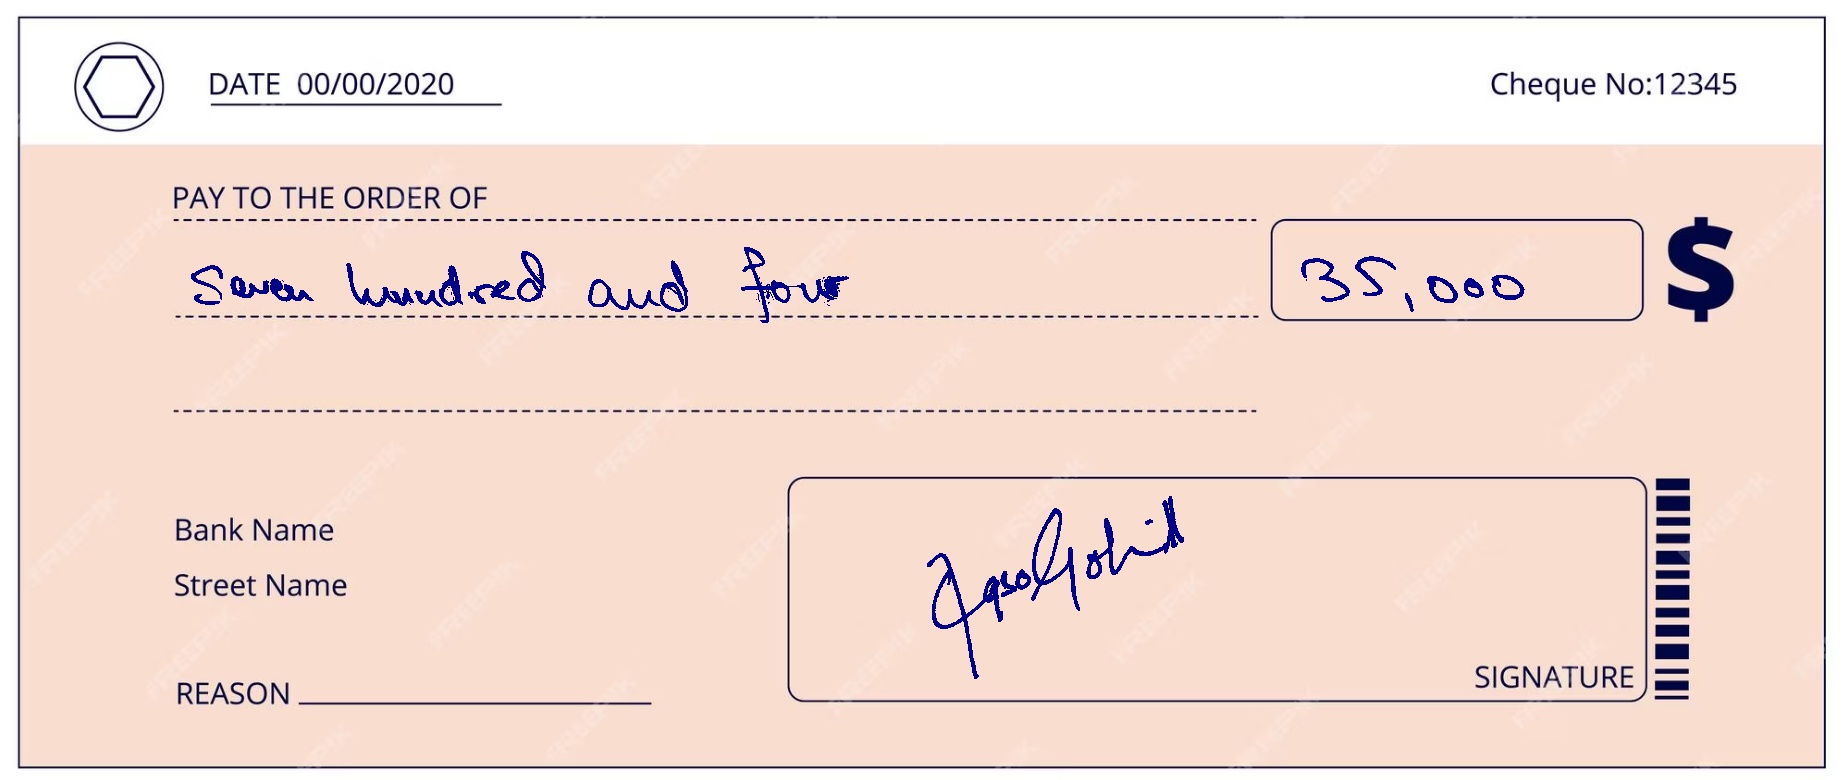 DATE 00/00/2020
Cheque No:12345
PAY TO THE ORDER OF
Seven hundred and four
35,000
$
Bank Name
Street Name
REASON
SIGNATURE